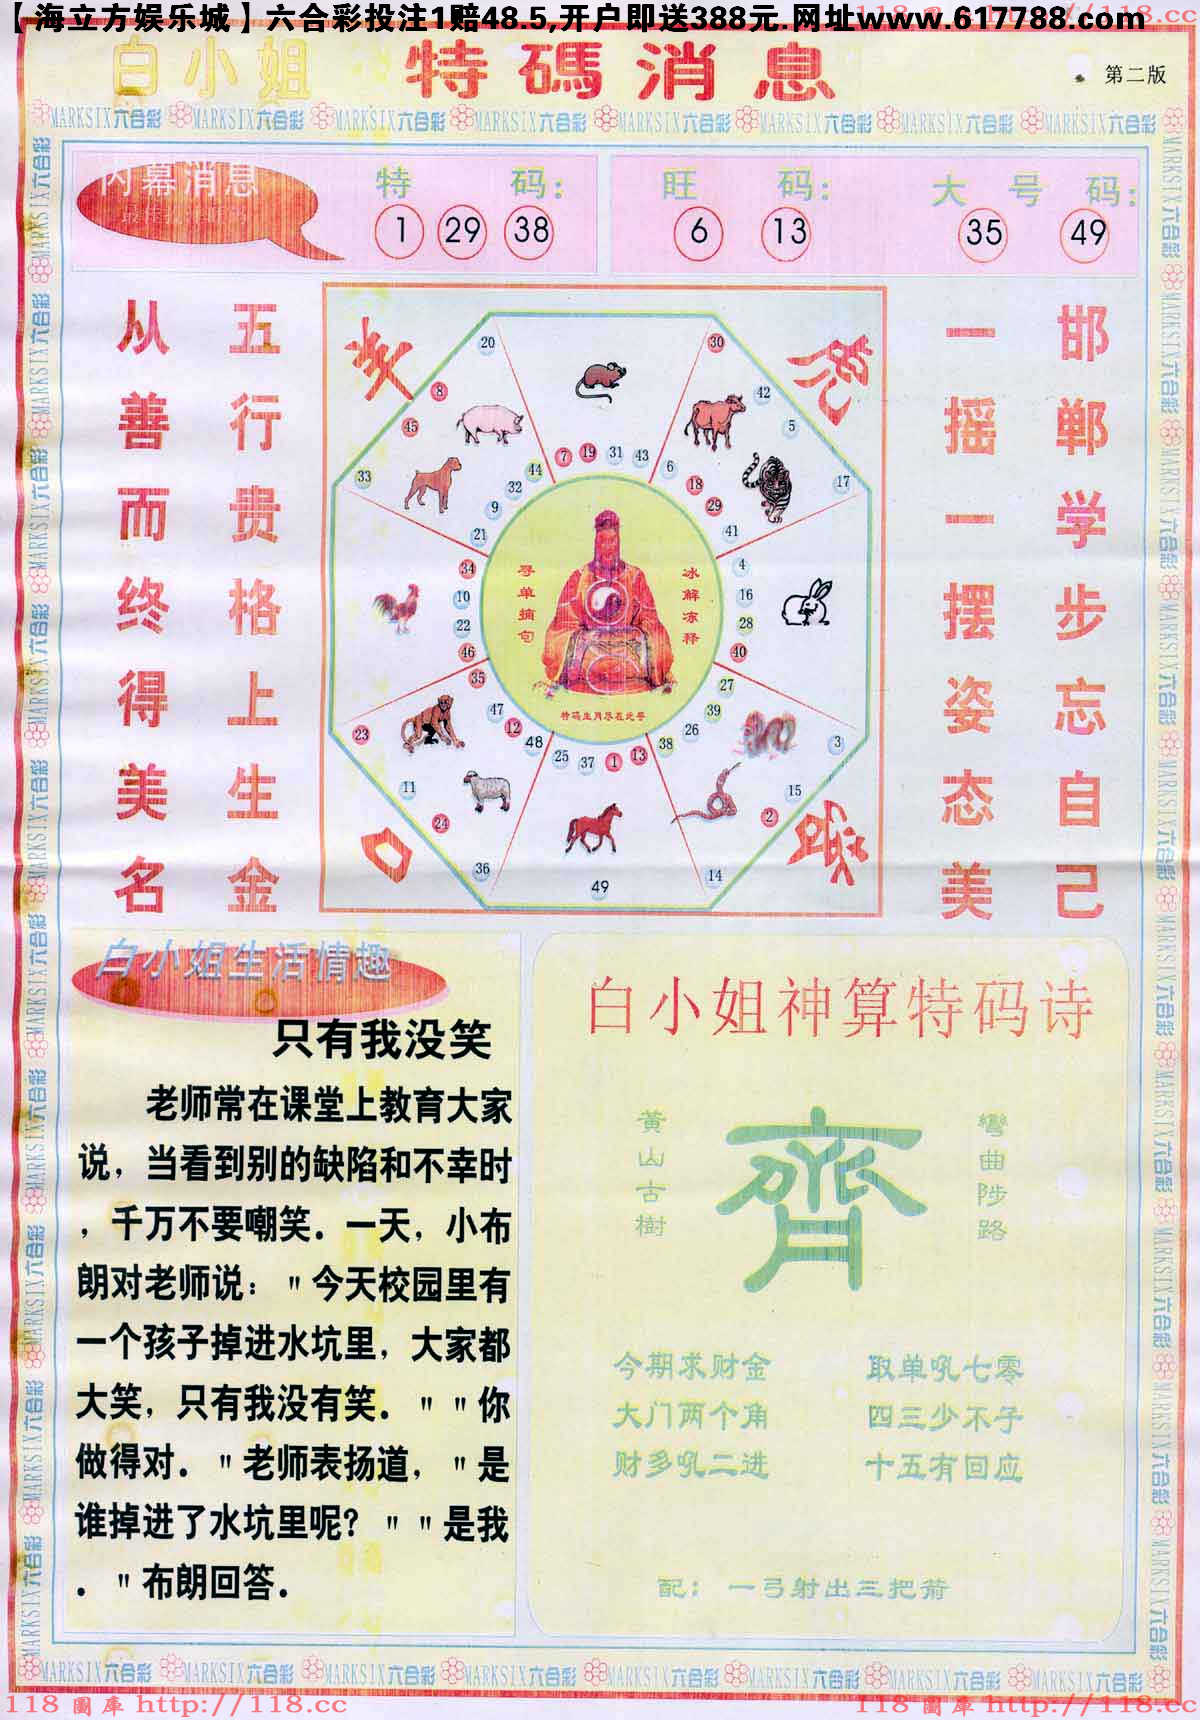 【海立方娱乐城】六合彩投注1赔48.5,开户即送388元.网址www.617788.com
白小姐 特碼消息 第二版
MARKSIX六合彩 MARKSIX六合彩 MARKSIX六合彩 MARKSIX六合彩 MARKSIX六合彩 MARKSIX六合彩 MARKSIX六合彩 MARKSIX六合彩
内幕消息
特码:
1 29 38
旺码:
6 13
大号码:
35 49
从善而终得美名
五行贵格上生金
一摇一摆姿态美
邯郸学步忘自己
羊
虎
20 30
8 42
45 5
33 17
7 19 31 43
44 6
32 18
9 29
21 41
34 4
10 16
22 28
46 40
35 27
47 39
12 26
48 38
25 37 1 13
23 3
11 15
24 2
36 14
49
寻单摘句
冰解冻释
特码生肖尽在此号
口
白小姐生活情趣
只有我没笑
老师常在课堂上教育大家
说，当看到别的缺陷和不幸时
，千万不要嘲笑．一天，小布
朗对老师说："今天校园里有
一个孩子掉进水坑里，大家都
大笑，只有我没有笑．""你
做得对．"老师表扬道，"是
谁掉进了水坑里呢？""是我
．"布朗回答．
白小姐神算特码诗
黃山古樹
齊
彎曲陟路
今期求财金 取单吼七零
大门两个角 四三少不子
财多吼二进 十五有回应
配：一弓射出三把箭
MARKSIX六合彩 MARKSIX六合彩 MARKSIX六合彩 MARKSIX六合彩 MARKSIX六合彩 MARKSIX六合彩 MARKSIX六合彩 MARKSIX六合彩
118 圖庫 http://118.cc 118 圖庫 http://118.cc